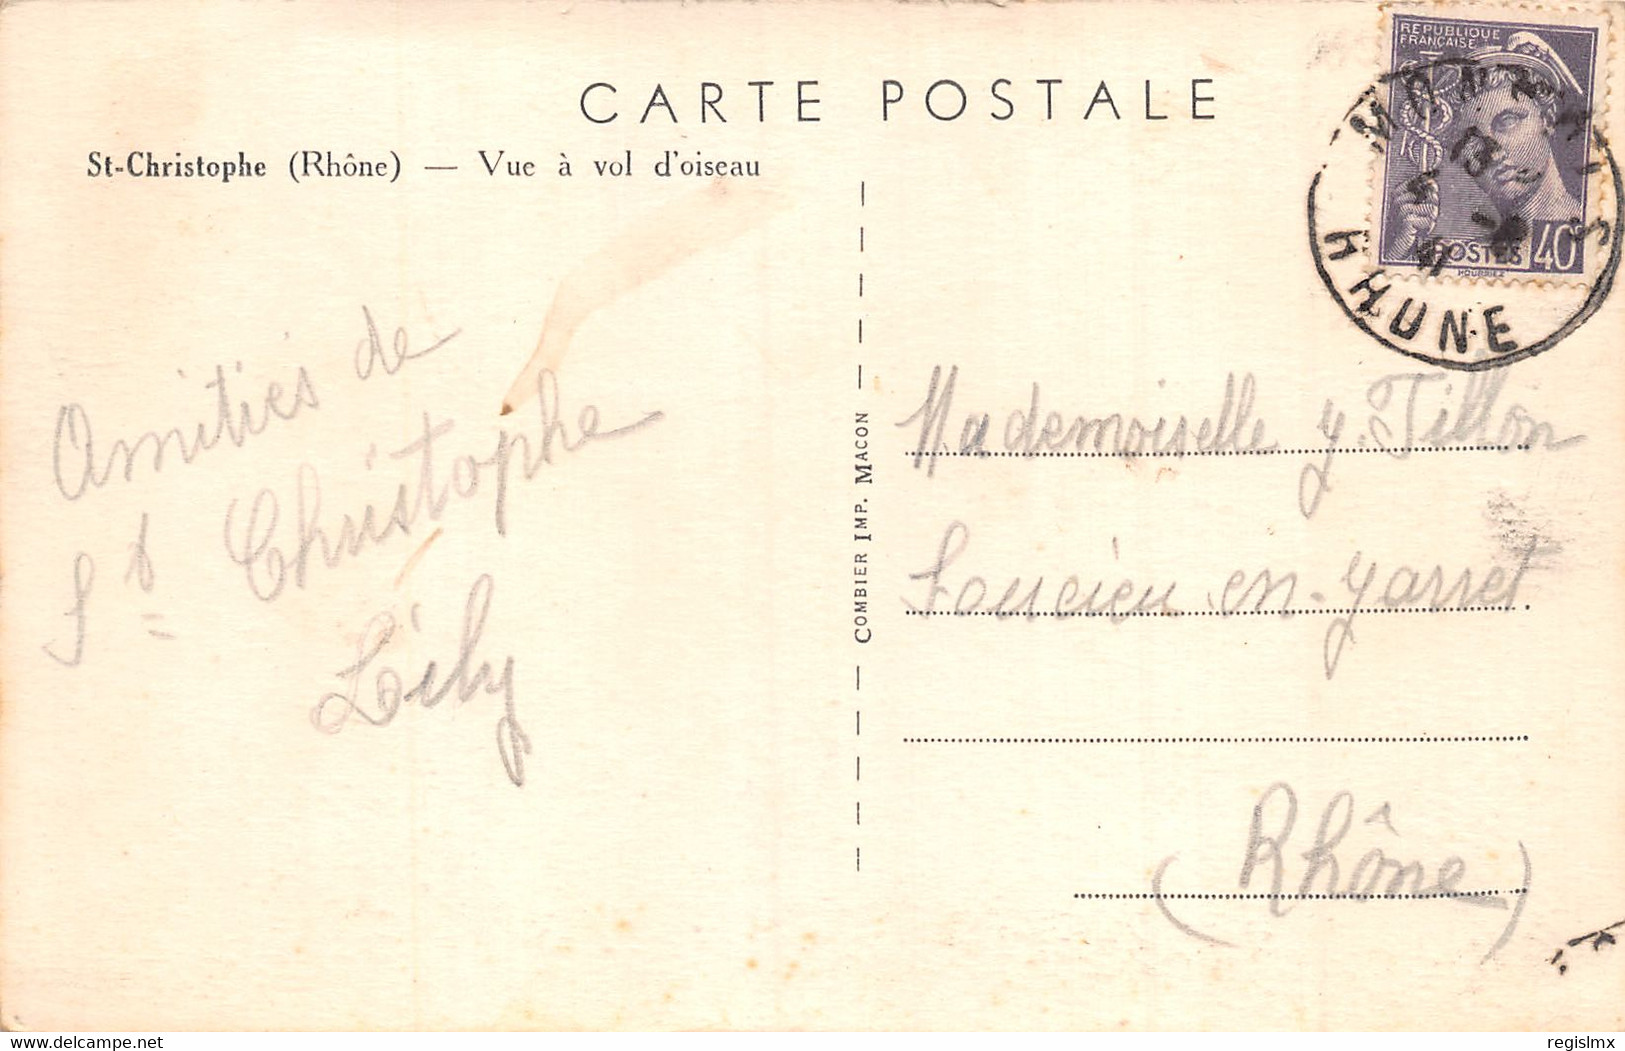 CARTE POSTALE
St-Christophe (Rhône) — Vue à vol d'oiseau
REPUBLIQUE
FRANÇAISE
POSTES 40c
HOURRIEZ
MONSOLS
RHONE
Amitiés de
St Christophe
Lily
COMBIER IMP. MACON
Mademoiselle y. Tillon
Soucieu-en-Jarret
(Rhône)
delcampe.net
regislmx